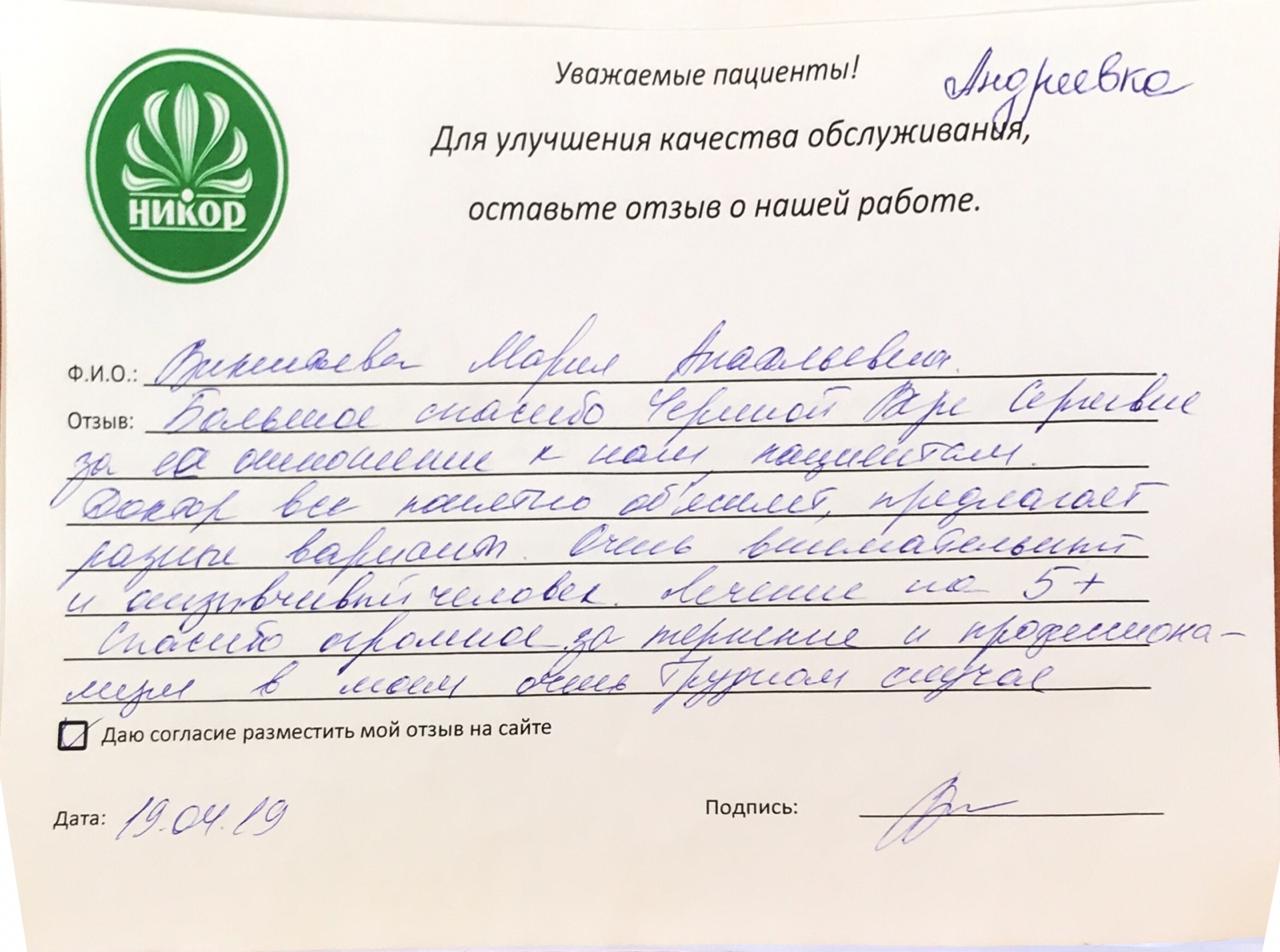 Андреевка
Уважаемые пациенты!
Для улучшения качества обслуживания,
оставьте отзыв о нашей работе.
НИКОР
Ф.И.О.: Мария Анатольевна.
Отзыв: Большое спасибо Черниной Вере Сергеевне
за её отношение к нам, пациентам.
Доктор все понятно объясняет, предлагает
разные варианты. Очень внимательный
и отзывчивый человек. Лечение на 5+
Спасибо огромное за терпение и профессиона-
лизм в моем очень трудном случае
Даю согласие разместить мой отзыв на сайте
Дата: 19.04.19
Подпись: